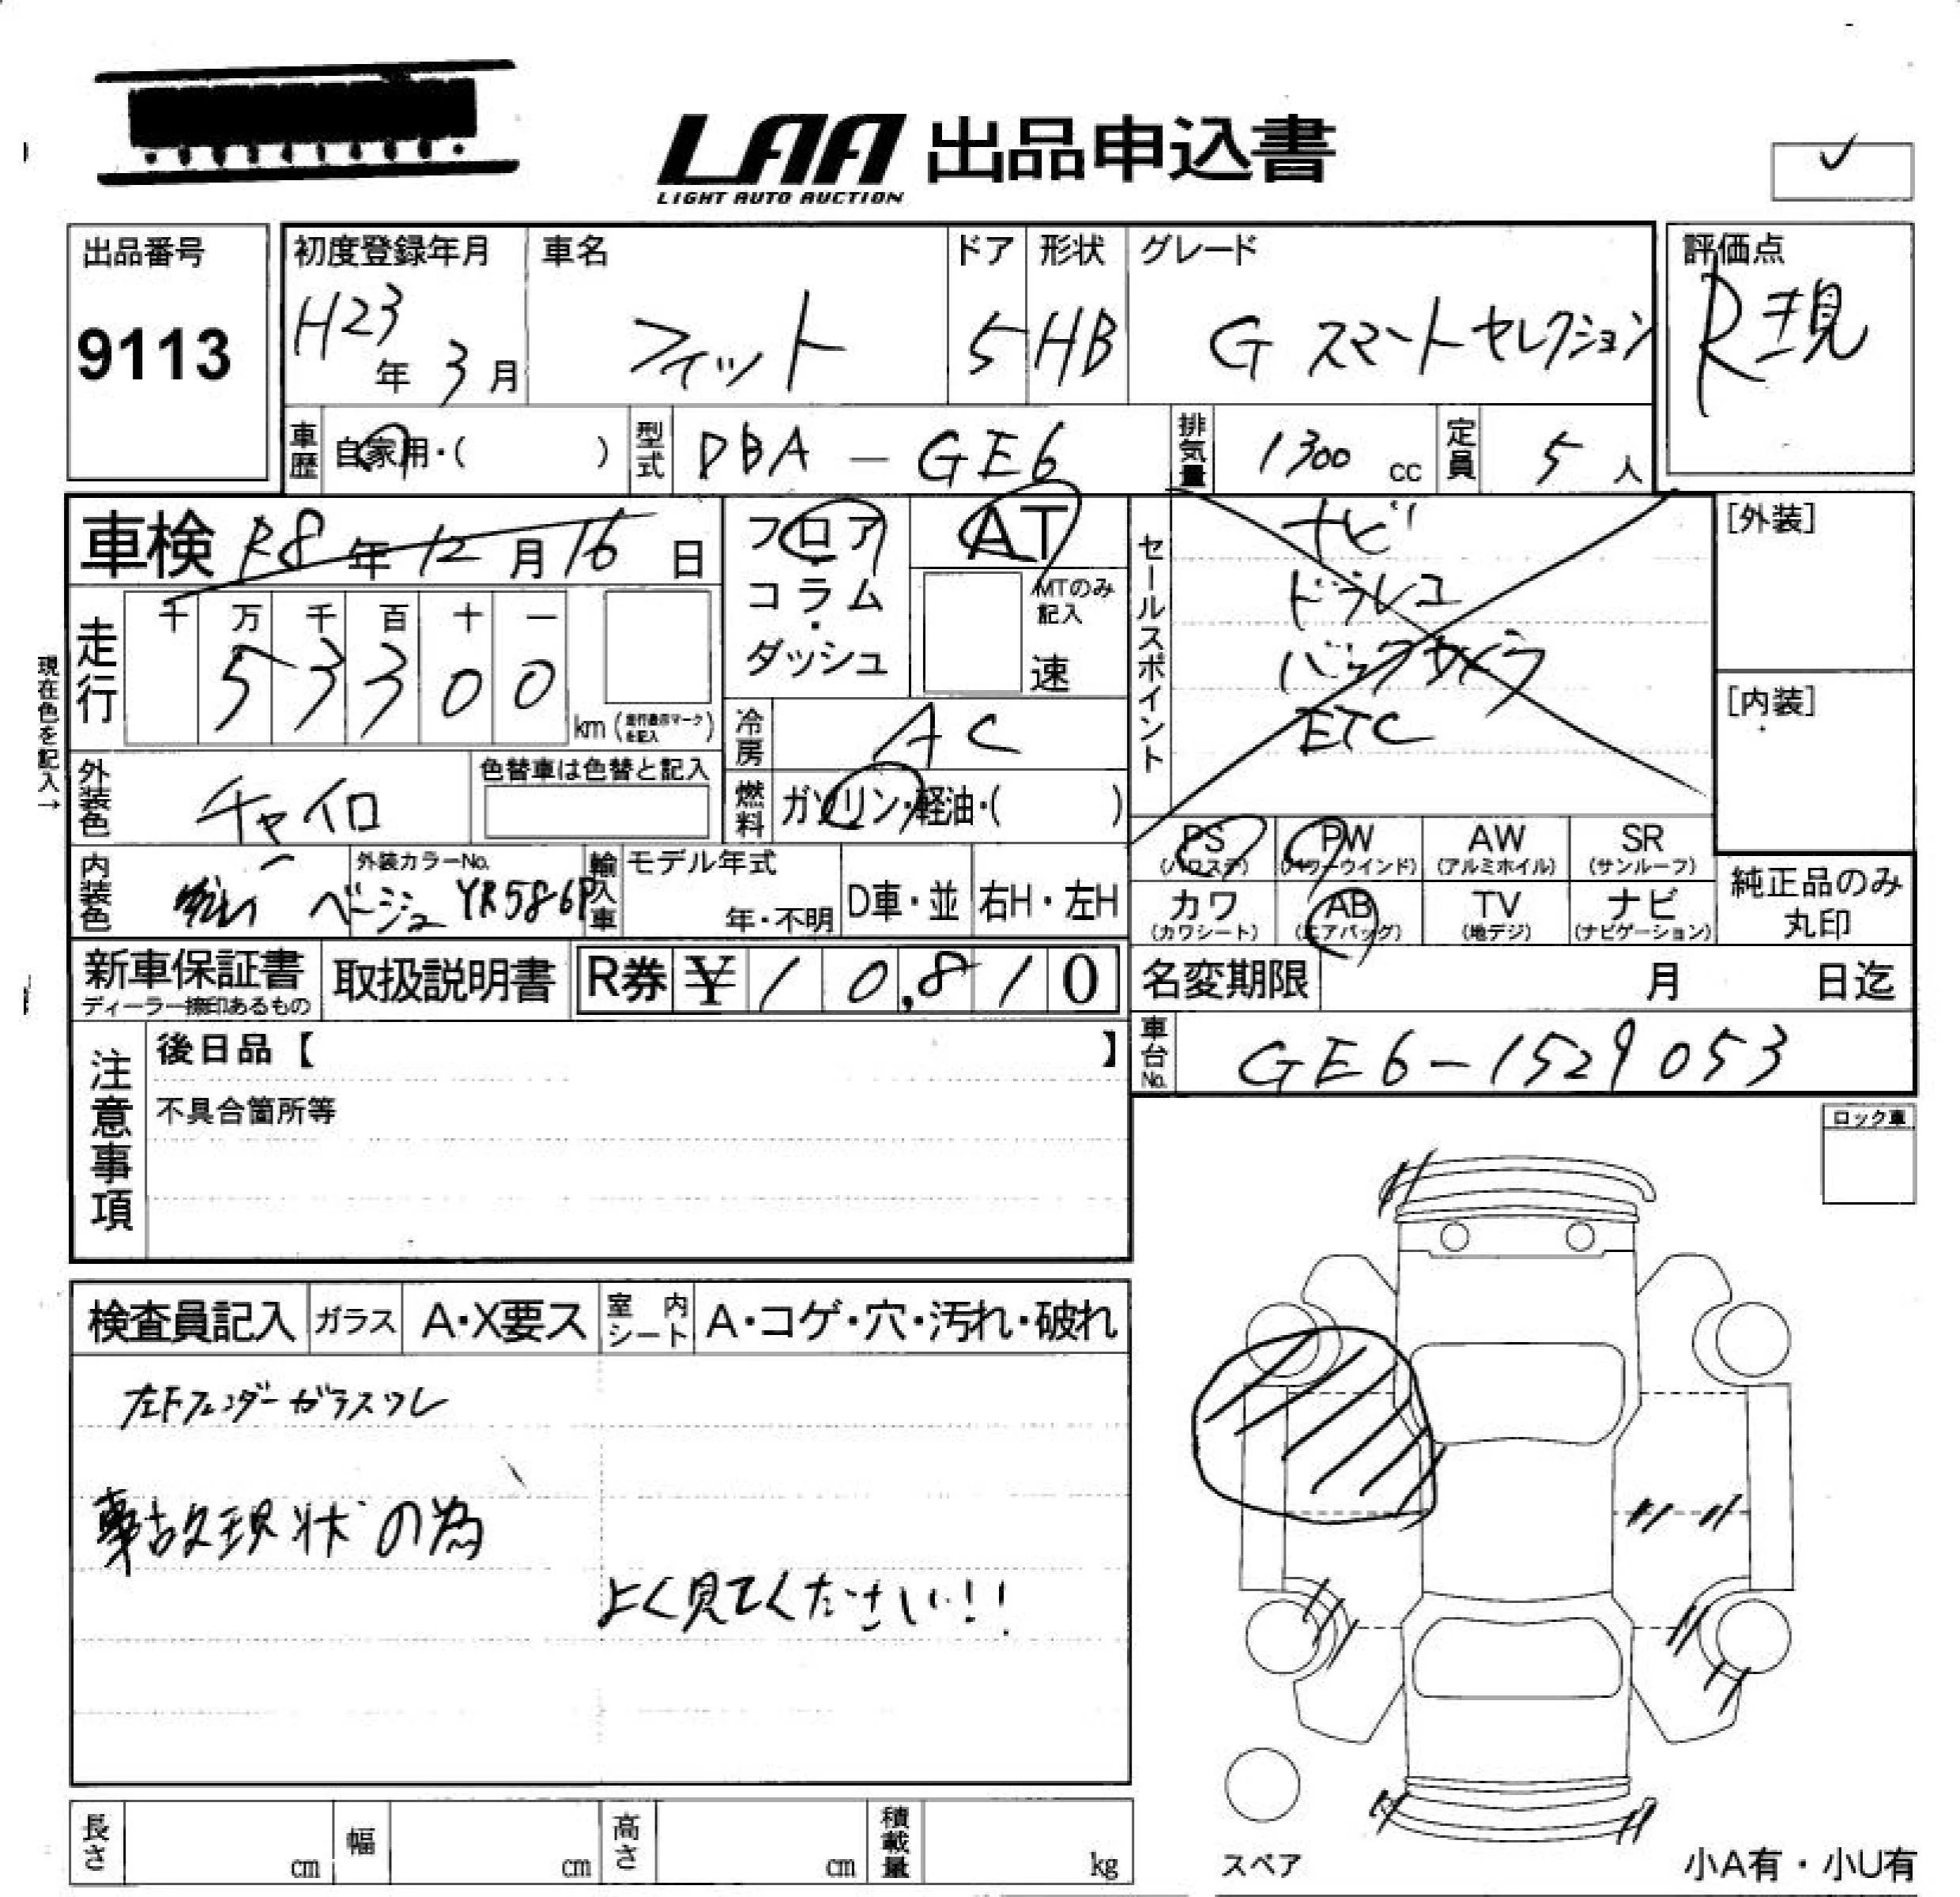 LAA 出品申込書
LIGHT AUTO AUCTION
出品番号
9113
初度登録年月
H23年 3月
車名
フィット
ドア
5
形状
HB
グレード
G スマートセレクション
評価点
R現
車歴
自家用・( )
型式
DBA - GE6
排気量
1300 cc
定員
5人
車検 R8年12月16日
走行
千 万 千 百 十 一
5 3 3 0 0
km (走行表示マークを記入)
現在色を記入→
フロア・コラム・ダッシュ
AT
MTのみ記入
速
冷房
AC
燃料
ガソリン・軽油・( )
セールスポイント
ナビ
ドラレコ
バックカメラ
ETC
[外装]
[内装]
外装色
チャイロ
色替車は色替と記入
内装色
ベージュ
外装カラーNo.
YR586P
輸入車
モデル年式
年・不明
D車・並
右H・左H
PS (パワステ)
PW (パワーウインド)
AW (アルミホイル)
SR (サンルーフ)
カワ (カワシート)
AB (エアバッグ)
TV (地デジ)
ナビ (ナビゲーション)
純正品のみ丸印
新車保証書
ディーラー捺印あるもの
取扱説明書
R券 ¥10,810
名変期限 月 日迄
車台No.
GE6-1529053
注意事項
後日品【 】
不具合箇所等
ロック車
検査員記入
ガラス
A・X要ス
室内シート
A・コゲ・穴・汚れ・破れ
左Fフェンダーガラスワレ
事故現状の為
よく見てください!!
長さ cm
幅 cm
高さ cm
積載量 kg
スペア
小A有・小U有